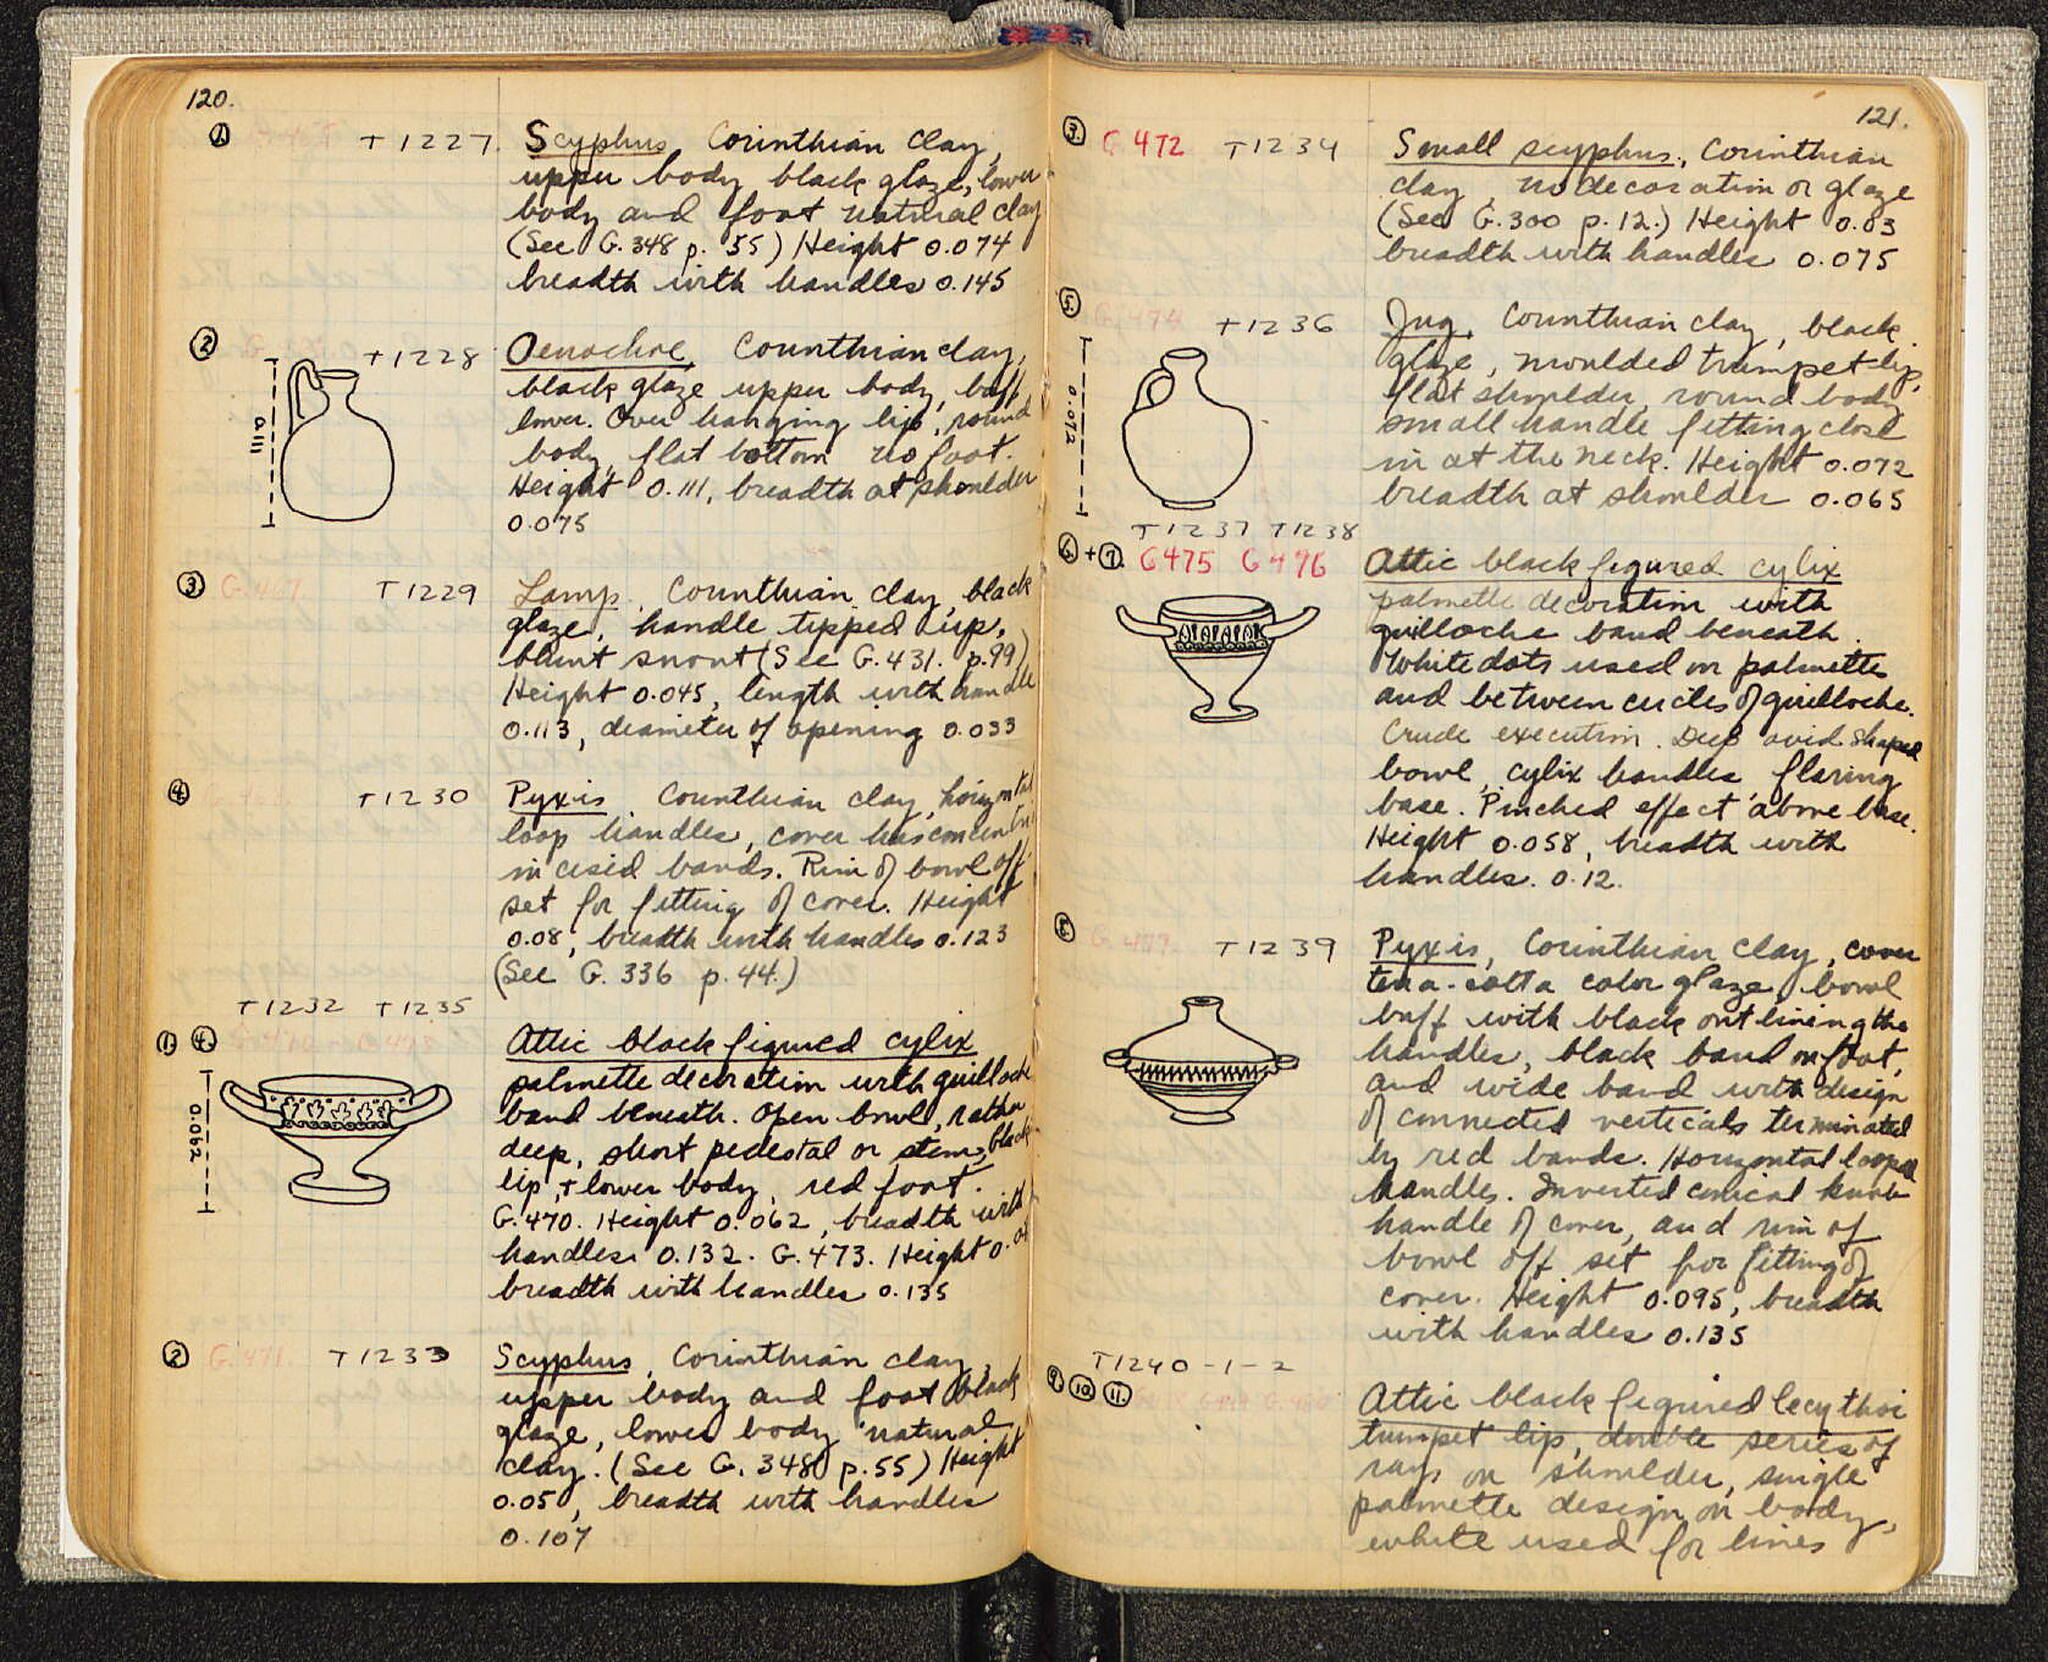 120.
1. T1227. Scyphus, Corinthian clay,
upper body black glaze, lower
body and foot natural clay
(See G.348 p. 55) Height 0.074
breadth with handles 0.145
2 T1228 Oenochoe, Corinthian clay,
black glaze upper body, buff
lower. Over hanging lip, round
body, flat bottom no foot.
Height 0.111, breadth at shoulder
0.075
0.111
3 G.467 T1229 Lamp, Corinthian clay, black
glaze, handle tipped up,
blunt snout (See G.431. p.99)
Height 0.045, length with handle
0.113, diameter of opening 0.033
4. T1230 Pyxis, Corinthian clay, horizontal
loop handles, cover has concentric
incised bands. Rim of bowl off
set for fitting of cover. Height
0.08, breadth with handles 0.123
(See G. 336 p. 44.)
T1232 T1235
1. 4. G.470 G.473 Attic black figured cylix
palmette decoration with guilloche
band beneath. Open bowl, rather
deep, short pedestal or stem, black
lip, + lower body, red foot.
G.470. Height 0.062, breadth with
handles 0.132. G.473. Height 0.
breadth with handles 0.135
0.062
2 G.471 T1233 Scyphus, Corinthian clay,
upper body and foot black
glaze, lower body natural
clay. (See G. 348 p.55) Height
0.05, breadth with handles
0.107
121.
3. G 472 T1234 Small scyphus, Corinthian
clay, no decoration or glaze
(See G.300 p.12.) Height 0.03
breadth with handles 0.075
5. G.474 T1236 Jug, Corinthian clay, black
glaze, moulded trumpet lip,
flat shoulder, round body
small handle fitting close
in at the neck. Height 0.072
breadth at shoulder 0.065
0.072
T1237 T1238
6. + 7. G475 G476 Attic black figured cylix
palmette decoration with
guilloche band beneath.
White dots used on palmettes
and between circles of guilloche.
Crude execution. Deep ovid shaped
bowl, cylix handles flaring
base. Pinched effect above base.
Height 0.058, breadth with
handles. 0.12.
8. G.477. T1239 Pyxis, Corinthian clay, cover
terra-cotta color glaze, bowl
buff with black outlining the
handles, black band on foot,
and wide band with design
of connected verticals terminated
by red bands. Horizontal looped
handles. Inverted conical knob
handle of cover, and rim of
bowl off set for fitting of
cover. Height 0.095, breadth
with handles 0.135
T1240-1-2
9. 10 11. G.480 Attic black figured lecythoi
trumpet lip, double series of
rays on shoulder, single
palmette design on body,
white used for lines